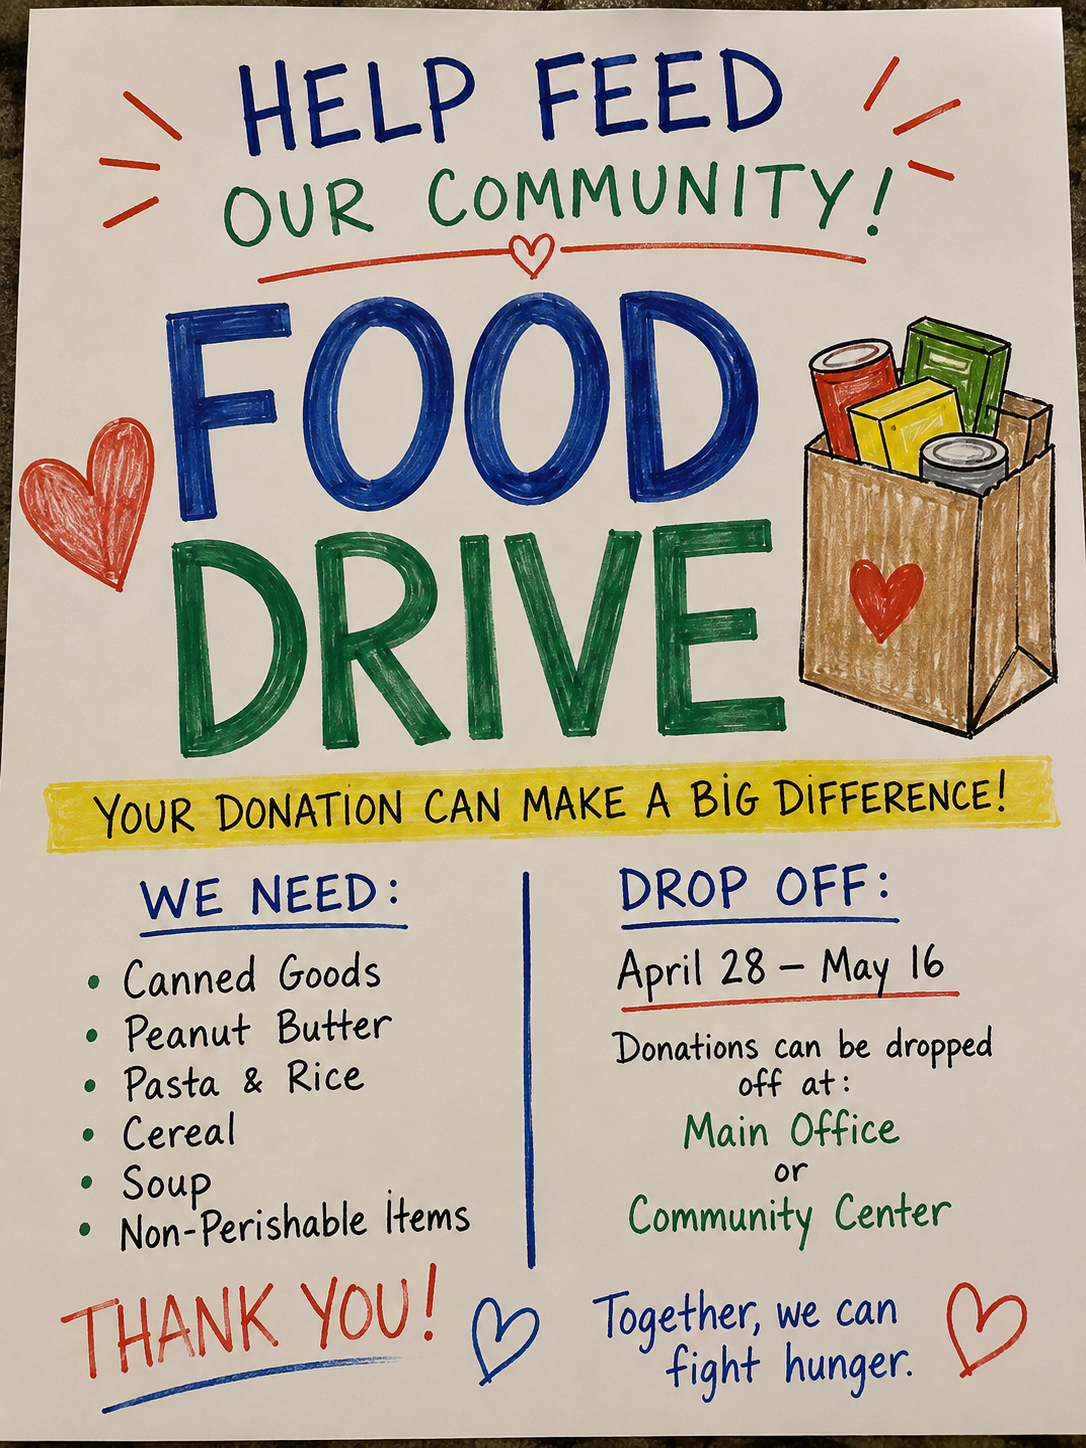 HELP FEED
OUR COMMUNITY!
FOOD
DRIVE
YOUR DONATION CAN MAKE A BIG DIFFERENCE!
WE NEED:
• Canned Goods
• Peanut Butter
• Pasta & Rice
• Cereal
• Soup
• Non-Perishable Items
DROP OFF:
April 28 – May 16
Donations can be dropped
off at:
Main Office
or
Community Center
THANK YOU!
Together, we can
fight hunger.